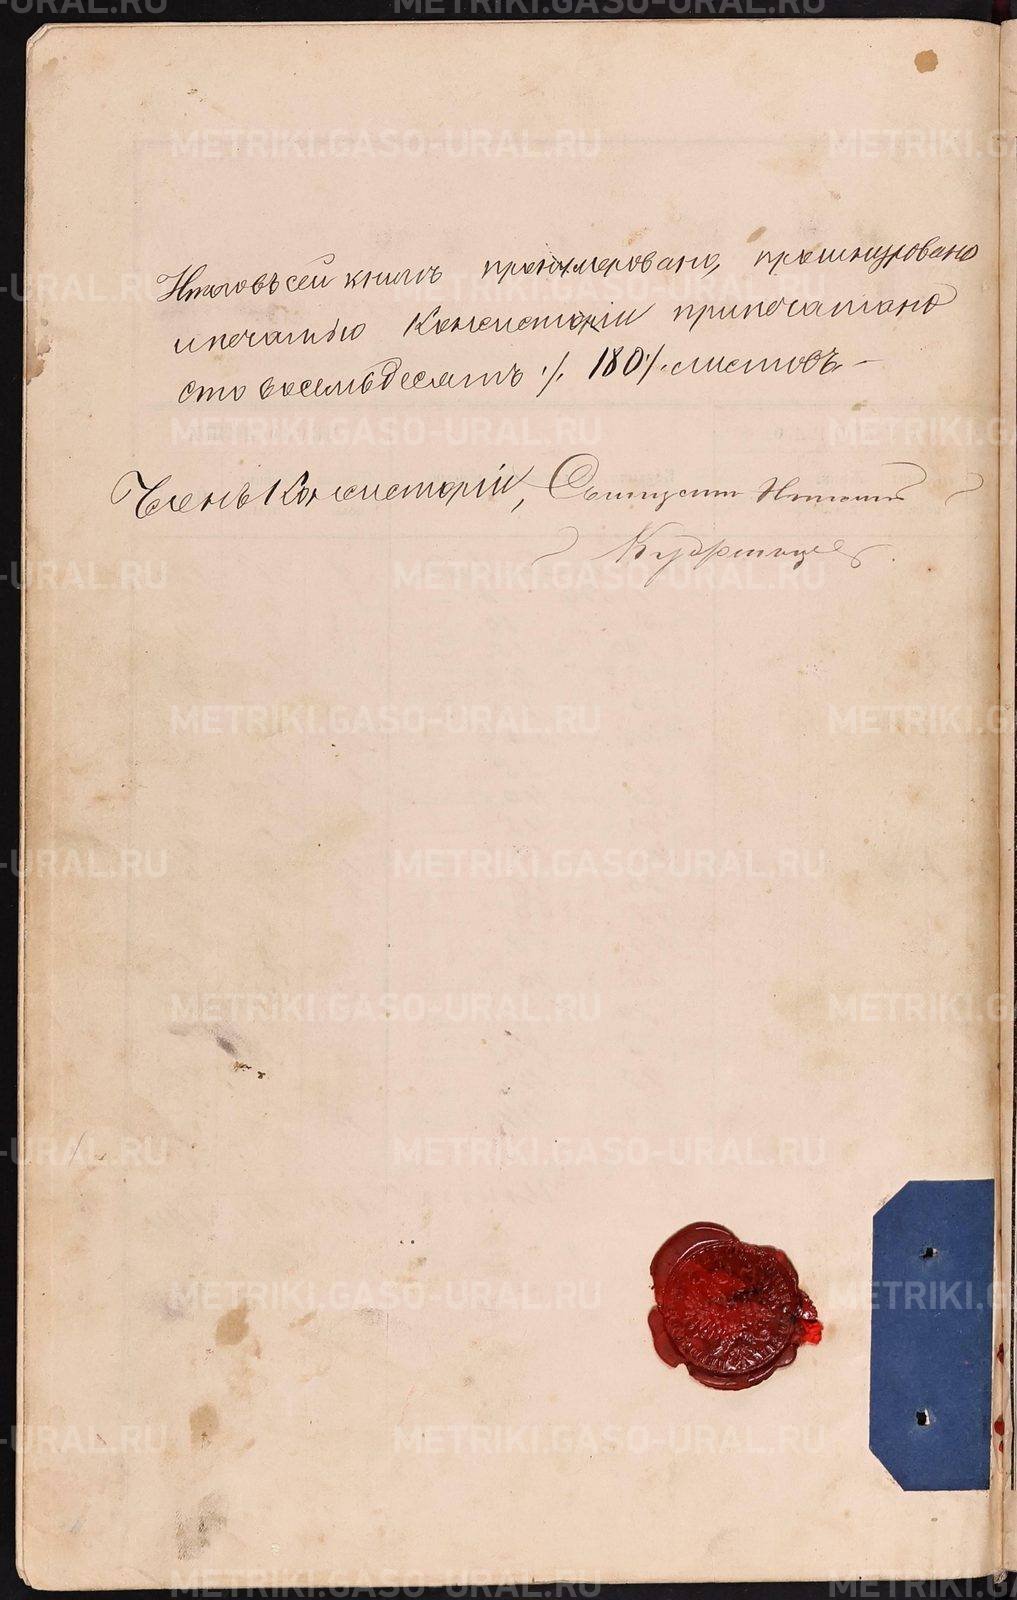 Итого въ сей книгѣ пронумеровано, прошнуровано
и печатью Консисторіи припечатано
сто восемьдесятъ ./. 180 ./. листовъ. –
Членъ Консисторіи, Священникъ
METRIKI.GASO-URAL.RU